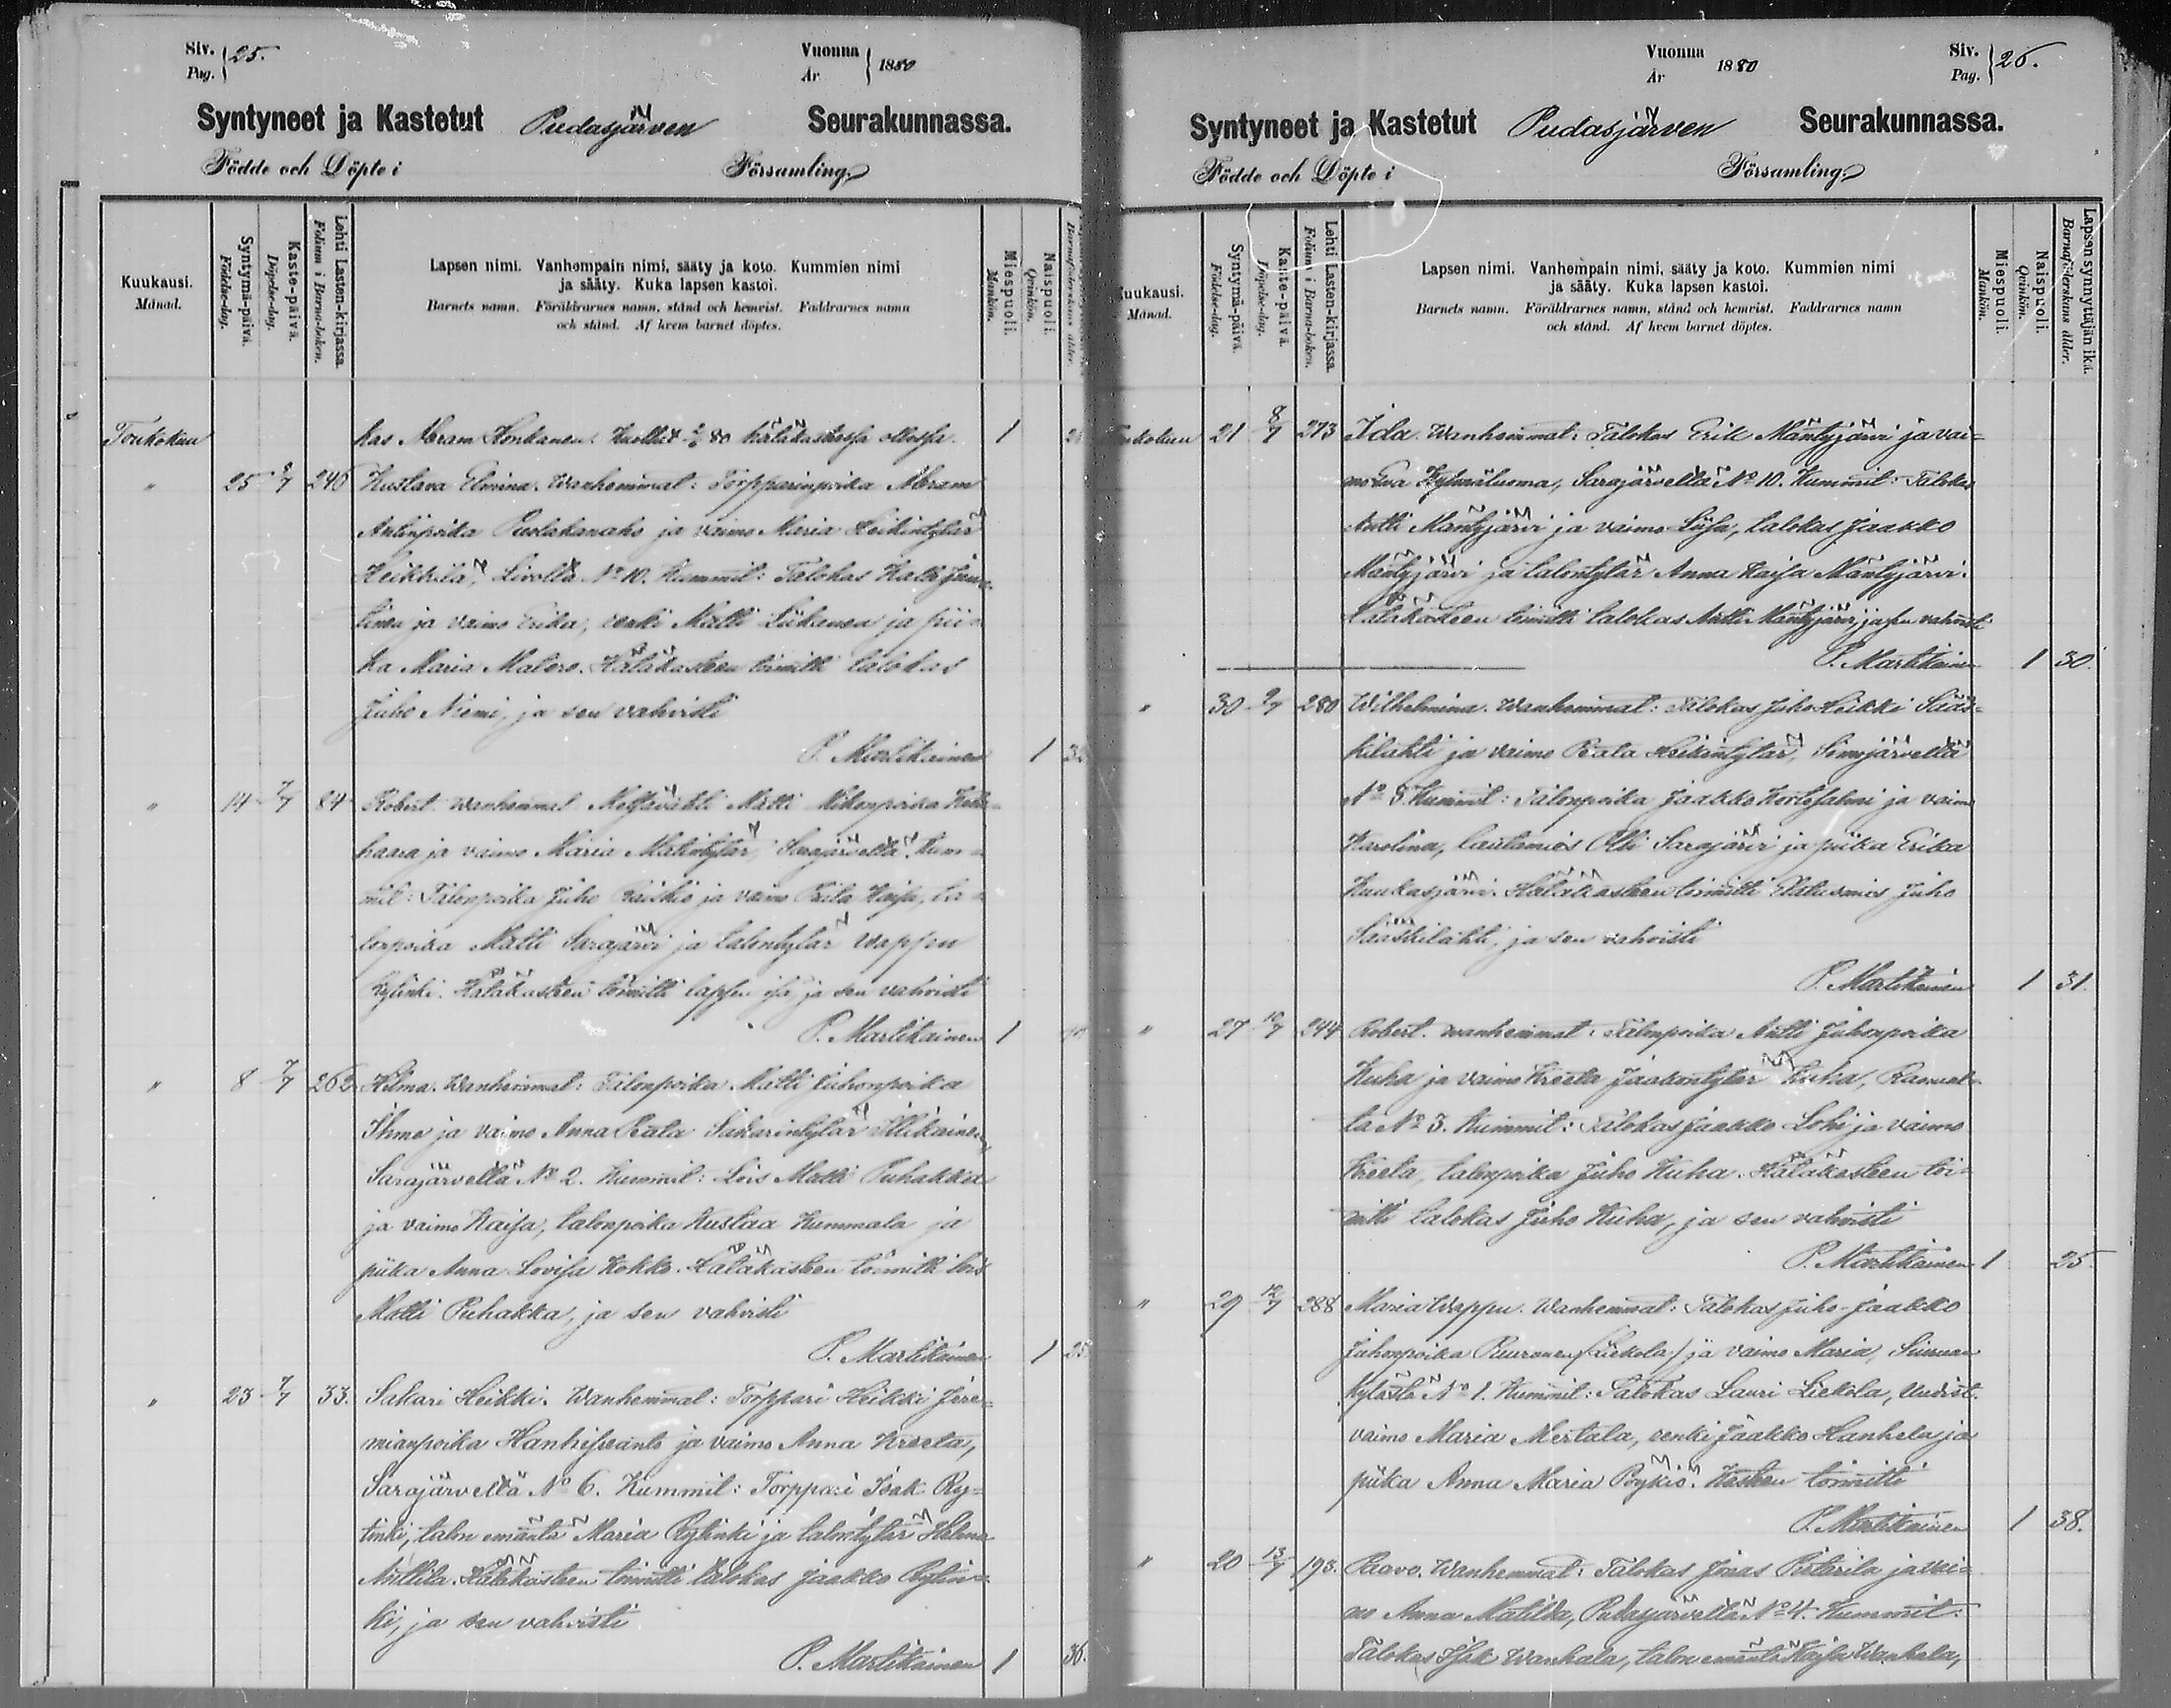 Siv.
Pag. 25.
Vuonna
År 1880
Syntyneet ja Kastetut Pudasjärven Seurakunnassa.
Födde och Döpte i Församling
Kuukausi.
Månad.
Syntymä-päivä.
Födelse-dag.
Kaste-päivä.
Döpelse-dag.
Lehti Lasten-kirjassa.
Folium i Barna-boken.
Lapsen nimi. Vanhempain nimi, sääty ja koto. Kummien nimi
ja sääty. Kuka lapsen kastoi.
Barnets namn. Föräldrarnes namn, stånd och hemvist. Faddrarnes namn
och stånd. Af hvem barnet döptes.
Miespuoli.
Mankön.
Naispuoli.
Qvinkön.
Barnaföderskans ålder.
Toukokuu kas Abram Honkanen. Kuollut 80 hätäkasteessa ollossa. 1
" 25 8/7 246 Kustava Elmina. Wanhemmat: Torpparinpoika Abram
Antinpoika Puolakanaho ja vaimo Maria Heikintytär
Heikkilä, Livolla No 10. Kummit: Talokas Matti
ja vaimo Erika, renki Matti ja pii-
ka Maria Matero. Hätäkasteen toimitti talokas
Juho Niemi, ja sen vahvisti
P. Martikainen 1
" 14 7/7 84 Robert. Wanhemmat Metsävahti Matti
haara ja vaimo Maria Matintytär, Sarajärveltä. Kum-
mit: Talonpoika Juho Räiskiö ja vaimo Kaisa, ta-
lonpoika Matti Sarajärvi ja talontytär Wappu
Rytinki. Hätäkasteen toimitti lapsen isä ja sen vahvisti
P. Martikainen 1
" 8 7/7 262 Hilma. Wanhemmat: Talonpoika Matti Juhonpoika
Ihme ja vaimo Anna Peata Sakarintytär Illikainen,
Sarajärveltä No 2. Kummit: Lois Matti Puhakka
ja vaimo Kaisa, talonpoika Kustaa Hummala ja
piika Anna Lovisa Kokko. Hätäkasteen toimitti lois
Matti Puhakka, ja sen vahvisti
P. Martikainen 1 25
" 23 7/7 33. Sakari Heikki. Wanhemmat: Torppari Heikki Jere-
mianpoika ja vaimo Anna Kreeta,
Sarajärveltä No 6. Kummit: Torppari Isak Ry-
tinki, talon emäntä Maria Rytinki ja talontytär Helena
Anttila. Hätäkasteen toimitti talokas Jaakko Rytin-
ki, ja sen vahvisti
P. Martikainen 1 36.
Vuonna
År 1880
Siv.
Pag. 26.
Syntyneet ja Kastetut Pudasjärven Seurakunnassa.
Födde och Döpte i Församling
Kuukausi.
Månad.
Syntymä-päivä.
Födelse-dag.
Kaste-päivä.
Döpelse-dag.
Lehti Lasten-kirjassa.
Folium i Barna-boken.
Lapsen nimi. Vanhempain nimi, sääty ja koto. Kummien nimi
ja sääty. Kuka lapsen kastoi.
Barnets namn. Föräldrarnes namn, stånd och hemvist. Faddrarnes namn
och stånd. Af hvem barnet döptes.
Miespuoli.
Mankön.
Naispuoli.
Qvinkön.
Lapsen synnyttäjän ikä.
Barnaföderskans ålder.
Toukokuu 21 8/7 273 Ida. Wanhemmat: Talokas Erik Mäntyjärvi ja vai-
mo Eva Kylmäluoma, Sarajärveltä No 10. Kummit: Talokas
Antti Mäntyjärvi ja vaimo Liisa, talokas Jaakko
Mäntyjärvi ja talontytär Anna Kaisa Mäntyjärvi.
Hätäkasteen toimitti talokas Antti Mäntyjärvi, ja sen vahvisti
P. Martikainen 1 30.
" 30 9/7 280 Wilhelmina. Wanhemmat: Talokas Juho Heikki Sääs-
kilahti ja vaimo Peata Heikintytär, Simojärveltä
No 5. Kummit: Talonpoika Jaakko Kortesalmi ja vaimo
Karolina, lautamies Olli Sarajärvi ja piika Erika
Kuukasjärvi. Hätäkasteen toimitti Elatusmies Juho
Sääskilahti, ja sen vahvisti
P. Martikainen 1 31.
" 27 10/7 244 Robert. Wanhemmat: Talonpoika Antti Juhonpoika
Kuha ja vaimo Kreeta Jaakontytär Kuha, Ranual-
ta No 3. Kummit: Talokas Jaakko Lohi ja vaimo
Kreeta, talonpoika Juho Kuha. Hätäkasteen toi-
mitti talokas Juho Kuha, ja sen vahvisti
P. Martikainen 1 25.
" 29 12/7 288 Maria Wappu. Wanhemmat: Talokas Juho Jaakko
Juhonpoika Puuronen (Liekola) ja vaimo Maria, Siuruan
kylästä No 1. Kummit: Talokas Lauri Liekola, Uudist.
vaimo Maria Mertala, renki Jaakko Hanhela ja
piika Anna Maria Pöykiö. Kasteen toimitti
P. Martikainen 1 38.
" 20 13/7 193. Paavo. Wanhemmat: Talokas Jonas Pietarila ja vai-
mo Anna Matilda, Pudasjärveltä No 4. Kummit:
Talokas Isak Wanhala, talon emäntä Kaisa Wanhala,